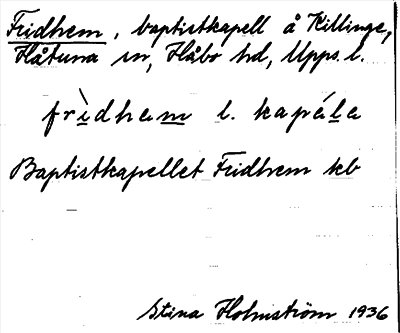 Fridhem, baptistkapell å Killinge,
Håtuna sn, Håbo hd, Upps. l.
frìdham l. kapéle
Baptistkapellet Fridhem kb
Stina Holmström 1936